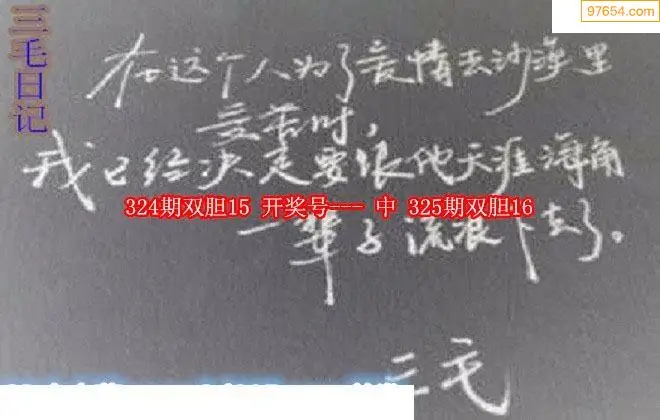 97654.com
三毛日记
在这个人为了爱情去沙漠里
受苦时,
我已经决定要跟他天涯海角
324期双胆15 开奖号--- 中 325期双胆16
一辈子流浪下去了。
三毛